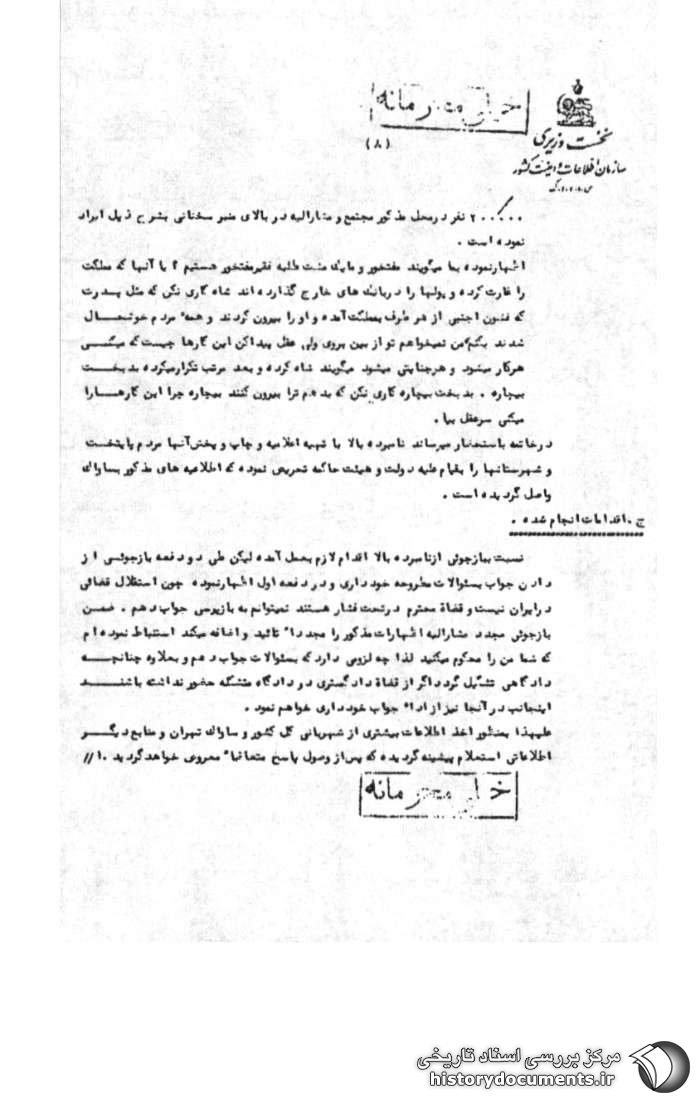 خیلی محرمانه
نخست وزیری
سازمان اطلاعات و امنیت کشور
(۸)
۲۰۰۰۰۰ نفر درمحل مذکور مجتمع و مشارالیه در بالای منبر سخنانی بشرح ذیل ایراد
نموده است .
اظهارنموده بما میگویند مفتخور و مایک مشت طلبه فقیرمفتخور هستیم ؟ یا آنها که مملکت
را غارت کرده و پولها را دربانک های خارج گذارده اند شاه کاری نکن که مثل پدرت
که قشون اجنبی از هر طرف بمملکت آمده و او را بیرون کردند و همهٔ مردم خوشحال
شدند بتکم من نمیخواهم تو از بین بروی ولی عقل پیداکن این کارها چیست که میکنی
هرکار میشود و هرجنایتی میشود میگویند شاه کرده و بعد مرتب تکرارمیکرده بدبخت
بیچاره . بدبخت بیچاره کاری نکن که بدهم ترا بیرون کنند بیچاره چرا این کارها را
میکنی سرعقل بیا .
درخاتمه باستحضار میرساند نامبرده بالا با تهیه اعلامیه و چاپ و پخش آنها مردم پایتخت
و شهرستانها را بقیام علیه دولت و هیئت حاکمه تحریص نموده که اطلاعیه های مذکور بساواک
واصل گردیده است .
ج . اقدامات انجام شده .
نسبت ببازجوئی ازنامبرده بالا اقدام لازم بعمل آمده لیکن طی دو دفعه بازجوئی از
دادن جواب بسئوالات مطروحه خودداری و در دفعه اول اظهارنموده چون استقلال قضائی
درایران نیست و قضاة محترم درتحت فشار هستند نمیتوانم به بازپرسی جواب دهم . ضمن
بازجوئی مجدد مشارالیه اظهارات مذکور را مجدداً تائید و اضافه میکند استنباط نموده ام
که شما من را محکوم میکنید لذا چه لزومی دارد که بسئوالات جواب دهم و بعلاوه چنانچه
دادگاهی تشکیل گردد اگر از قضاة دادگستری در دادگاه متشکله حضور نداشته باشند
اینجانب در آنجا نیز از اداء جواب خودداری خواهم نمود .
علیهذا بمنظور اخذ اطلاعات بیشتری از شهربانی کل کشور و ساواک تهران و منابع دیگر
اطلاعاتی استعلام پیشینه گردیده که پس از وصول پاسخ متعاقباً معروض خواهد گردید .۱۰//
خیلی محرمانه
مرکز بررسی اسناد تاریخی
historydocuments.ir